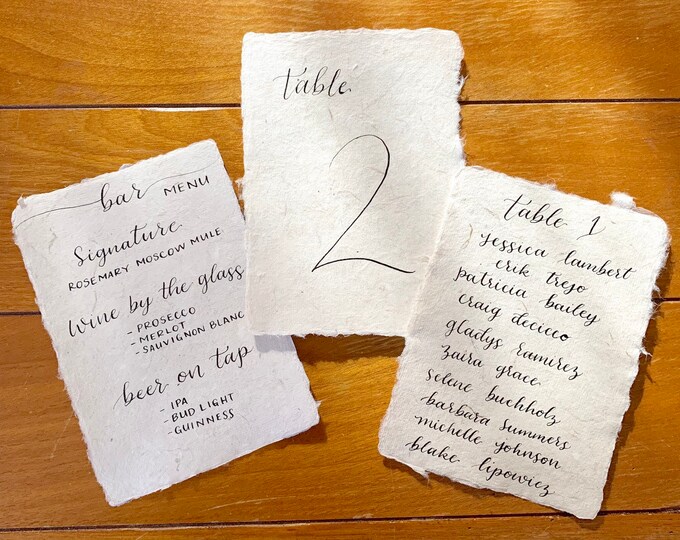 bar MENU
Signature
ROSEMARY MOSCOW MULE
wine by the glass
- PROSECCO
- MERLOT
- SAUVIGNON BLANC
beer on tap
- IPA
- BUD LIGHT
- GUINNESS
table
2
table 1
jessica lambert
erik trejo
patricia bailey
craig decicco
gladys ramirez
zaira grace
selene buchholz
barbara summers
michelle johnson
blake lipowiez